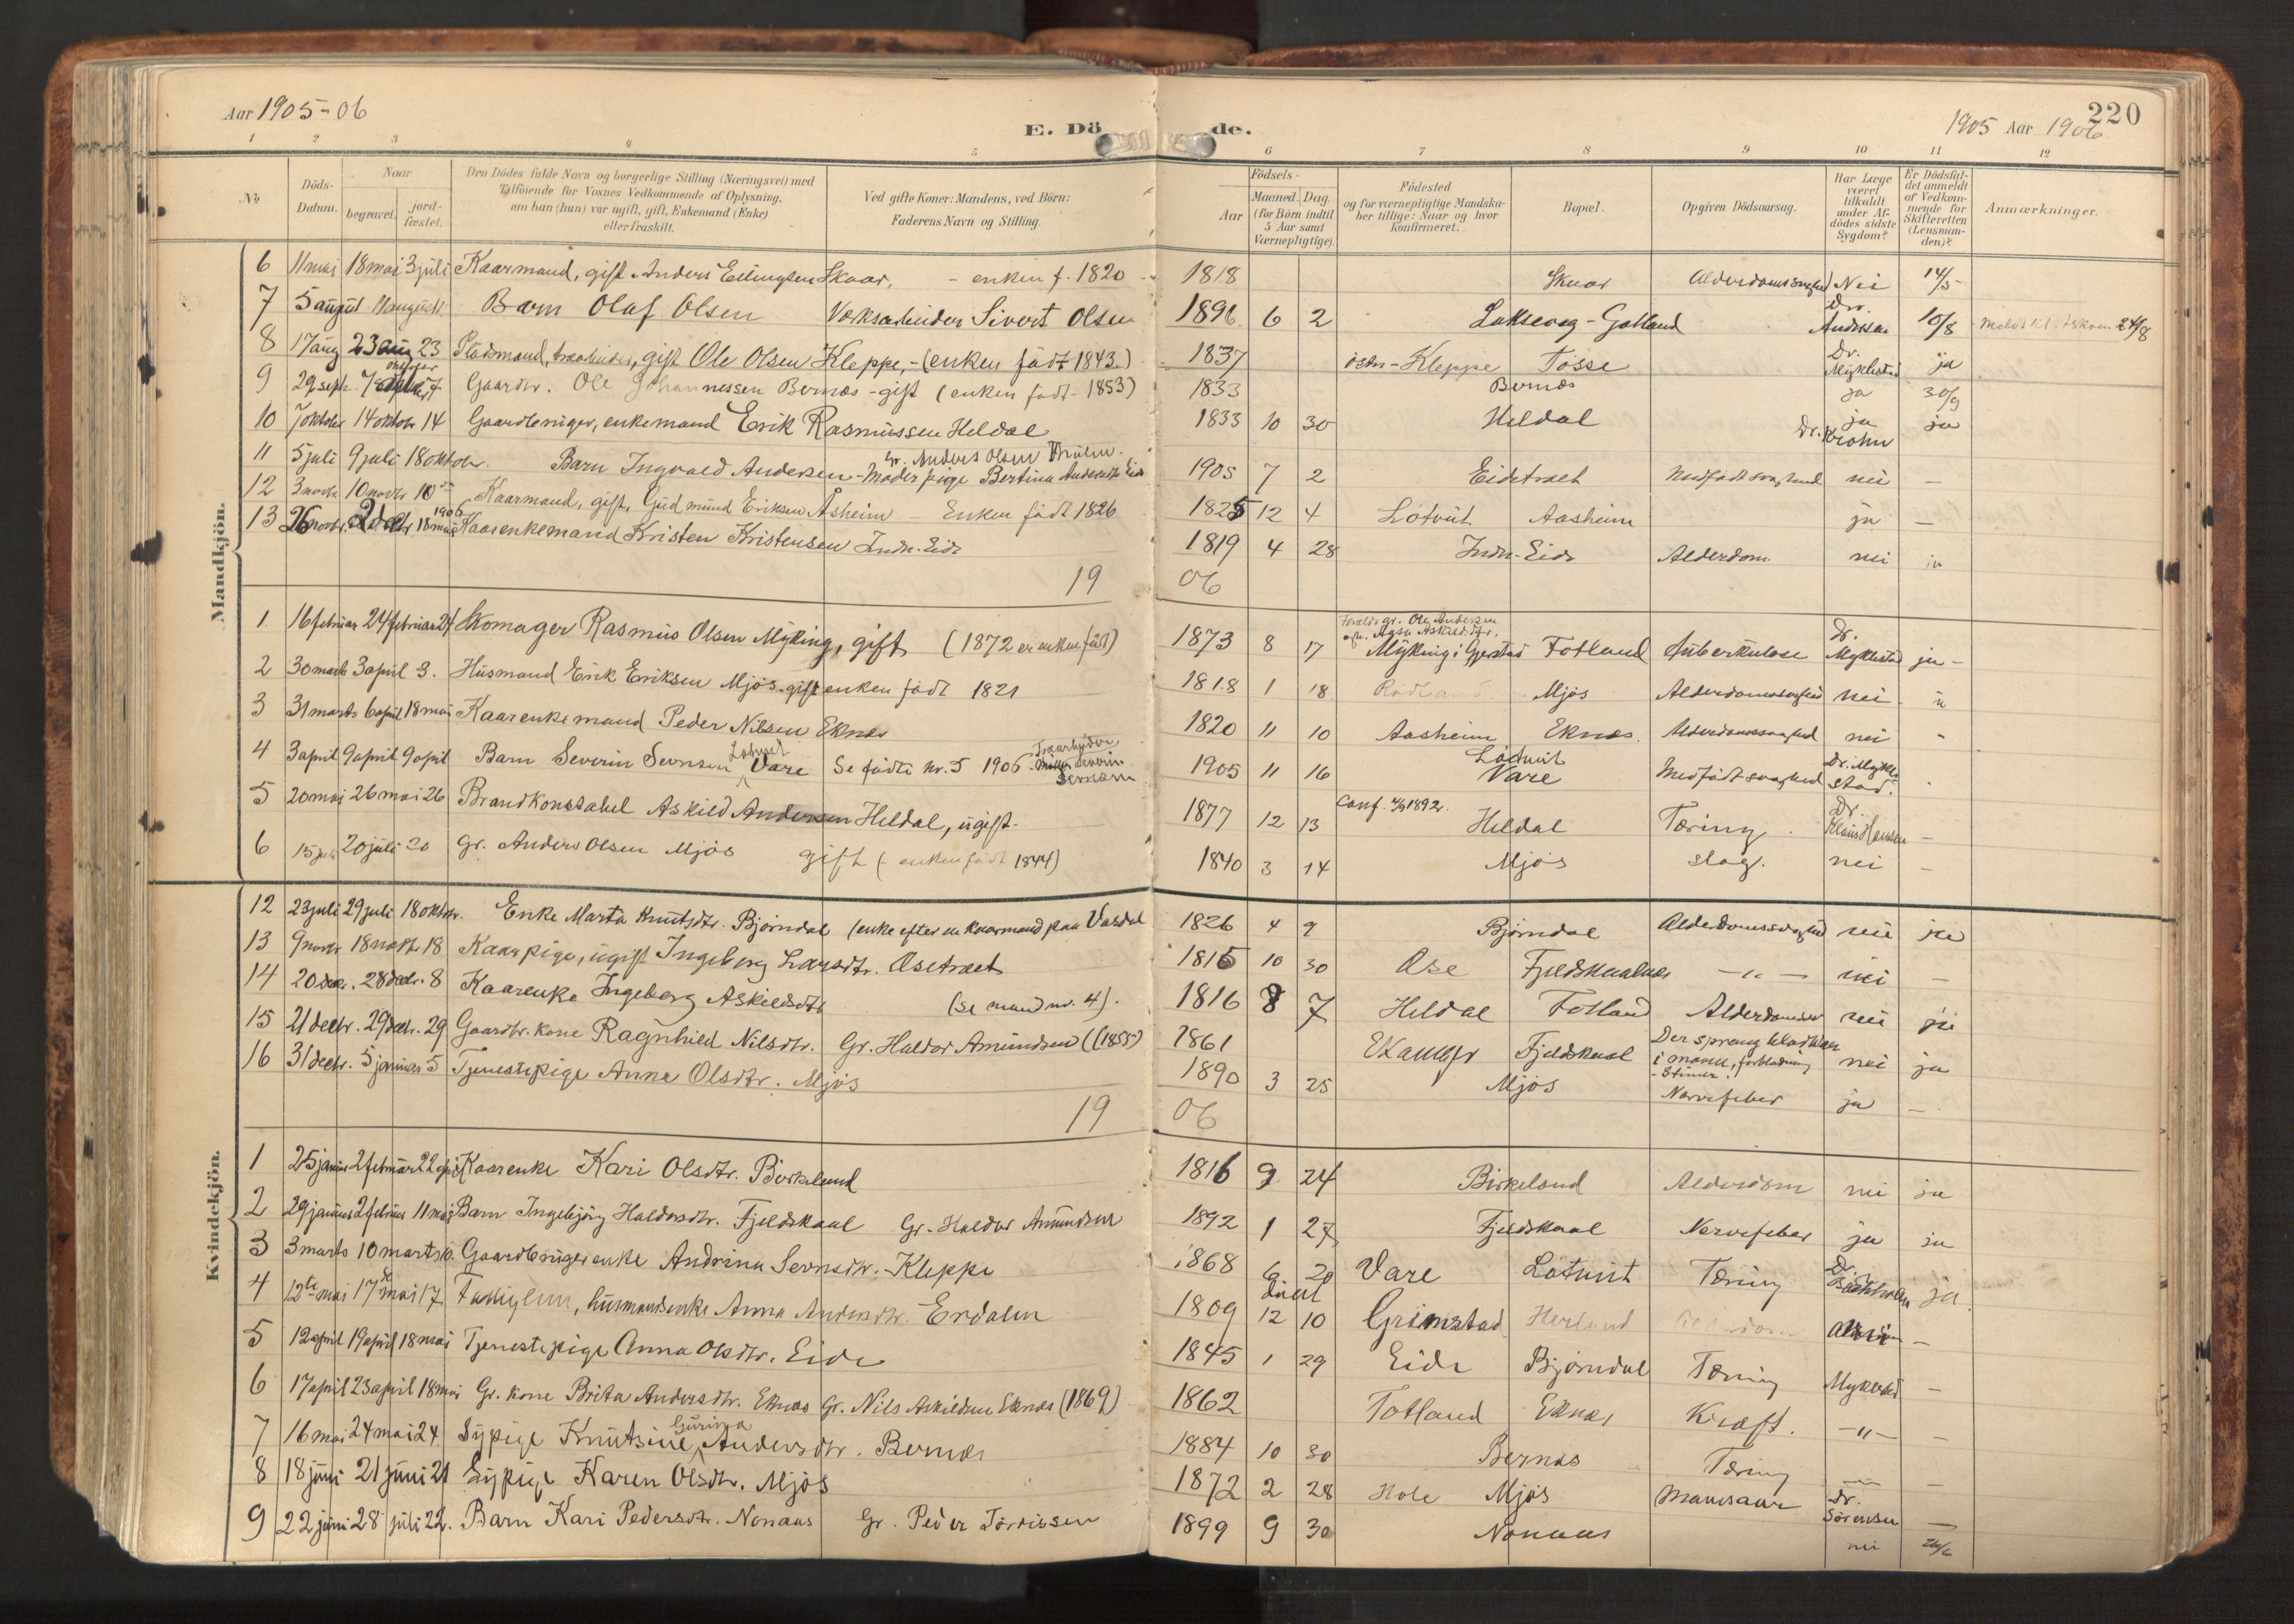 Aar 1905-06
E. Dö de.
1905 Aar 1906
220
1 2 3 4 5 6 7 8 9 10 11 12
No
Döds-Datum.
Naar
begravet.
jord-fæstet.
Den Dödes fulde Navn og borgerlige Stilling (Næringsvei) med
Tilföiende for Voxnes Vedkommende af Oplysning,
om han (hun) var ugift, gift, Enkemand (Enke)
eller fraskilt.
Ved gifte Koner: Mandens, ved Börn:
Faderens Navn og Stilling.
Födsels-
Aar
Maaned. Dag.
(for Börn indtil
5 Aar samt
Værnepligtige).
Födested
og for værnepligtige Mandska-
ber tillige: Naar og hvor
konfirmeret.
Bopæl.
Opgiven Dödsaarsag.
Har Læge
været
tilkaldt
under Af-
dödes sidste
Sygdom?
Er Dödsfal-
det anmeldt
af Vedkom-
mende for
Skifteretten
(Lensman-
den)?
Anmærkninger.
Mandkjön.
6 11 mai 18 mai 3 juli Kaarmand, gift Anders Ellingsen Skaar, - enken f. 1820 1818 Skaar Alderdomssvaghed Nei 14/5
7 5 august 11 august Barn Olaf Olsen Værksarbeider Sivert Olsen 1896 6 2 Laksevag - Gotland Dr. Andersen 10/8 24/8
8 17 aug 23 aug 23 Pladsmand, træarbeider, gift Ole Olsen Kleppe, - (enken födt 1843) 1837 östre-Kleppe Tosse Dr. Myklestad ja
9 29 sept. 7 oktober 7 Gaardbr. Ole Johannessen Bernæs - gift (enken födt 1853) 1833 Bernæs ja 30/9
10 7 oktober 14 oktobr 14 Gaardbruger, enkemand Erik Rasmussen Heldal 1833 10 30 Heldal ja Dr. Krohn ja
11 5 juli 9 juli 18 oktobr. Barn Ingvald Andersen - Gr. Anders Olsen Moder pige Bertina Andersdtr Eide 1905 7 2 Eidetræet Medfödt svaghed nei -
12 3 novbr 10 novbr 10 Kaarmand, gift, Gudmund Eriksen Åsheim Enken födt 1826 1825 12 4 Lötveit Aasheim ja -
13 26 novbr. 2 decbr 1906 18 mai Kaarenkemand Kristen Kristensen Indre-Eide 1819 4 28 Indre-Eide Alderdom nei ja
19 06
1 16 februar 24 februar 24 Skomager Rasmus Olsen Myking, gift (1872 er enken födt) 1873 8 17 Forældr gr. Ole Andersen og h. Agta Askildsdtr. Myking i Gjerstad Totland Tuberkulose Dr. Myklestad ja -
2 30 marts 3 april 3. Husmand Erik Eriksen Mjös - gift enken födt 1821 1818 1 18 Rödland Mjös Alderdomssvaghed nei
3 31 marts 6 april 18 mai Kaarenkemand Peder Nilsen Eknæs 1820 11 10 Aasheim Eknæs Alderdomssvaghed nei
4 3 april 9 april 9 april Barn Severin Sevrinsen Lötveit Vare Se födte nr. 5 1906 Træarbeider Severin Sevrinsen 1905 11 16 Lötveit Vare Medfödt svaghed Dr. Myklestad.
5 20 mai 26 mai 26 Brandkonstabel Askild Andersen Heldal, ugift 1877 12 13 Conf. 1892. Heldal Tæring Dr. Klaus Hansen -
6 15 juli 20 juli 20 Gr. Anders Olsen Mjös gift (enken födt 1844) 1840 3 14 Mjös slag. nei -
Kvindekjön.
12 23 juli 29 juli 18 oktbr. Enke Marta Knutsdtr. Bjørndal (enke efter en kaarmand paa Vasdal 1826 4 9 Bjørndal Alderdomssvaghed nei ja
13 9 novbr 18 novbr 18 Kaarpige, ugift Ingeborg Larsdtr. Osetræet 1815 10 30 Ose Fjeldskaalnes - " - nei -
14 20 decbr. 28 decbr. 8 Kaarenke Ingeborg Askildsdtr (se mand nr. 4). 1816 8 7 Heldal Totland Alderdomssv nei ja
15 21 decbr. 29 decbr. 29 Gaardbr. kone Ragnhild Nilsdtr. Gr. Haldor Amundsen (1855) 1861 Ekanger Fjeldskaal Der sprang blodkar i maven, forblødning nei ja
16 31 decbr. 5 januar 5 Tjenestepige Anna Olsdtr. Mjös 1890 3 25 Mjös Nervefeber ja -
19 06
1 25 januar 2 februar 22 april Kaarenke Kari Olsdtr. Birkeland 1816 9 24 Birkeland Alderdom nei ja
2 29 januar 2 februar 11 mai Barn Ingebjörg Haldorsdtr. Fjeldskaal Gr. Haldor Amundsen 1892 1 27 Fjeldskaal Nervefeber ja ja
3 3 marts 10 marts 10. Gaardbrugerenke Andrina Sevrinsdtr. Kleppe 1868 6 20 Vare Lötveit Tæring Dr. ja
4 12te mai 17de mai 17 Fattiglem, husmandsenke Anna Andersdtr. Erdalen 1809 döbt 12 10 Grimstad Herland Alderdom -
5 12 april 19 april 18 mai Tjenestepige Anna Olsdtr. Eide 1845 1 29 Eide Bjørndal Tæring Myklestad -
6 17 april 23 april 18 mai Gr. kone Brita Andersdtr. Eknæs Gr. Nils Askildsen Eknæs (1869) 1862 Totland Eknæs Kræft. - " - -
7 16 mai 24 mai 24 Sypige Knutsine Gurina Andersdtr. Bernæs 1884 10 30 Bernæs Tæring
8 18 juni 21 juni 21 Sypige Karen Olsdtr. Mjös 1872 2 28 Hole Mjös Mavesaar Dr. Sörensen -
9 22 juni 28 juli 22. Barn Kari Pedersdtr. Nonaas Gr. Peder Torrissen 1899 9 30 Nonaas nei 26/6